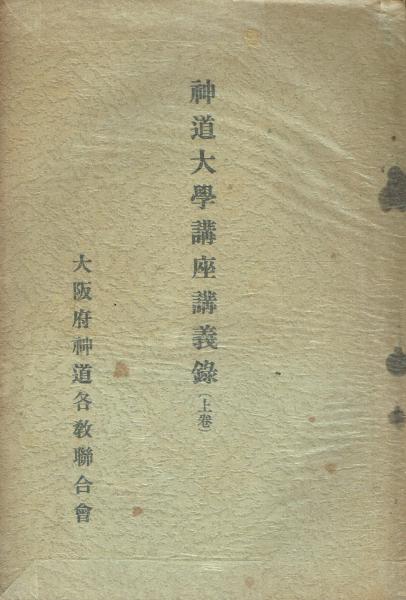 神道大學講座講義錄(上卷)
大阪府神道各敎聯合會